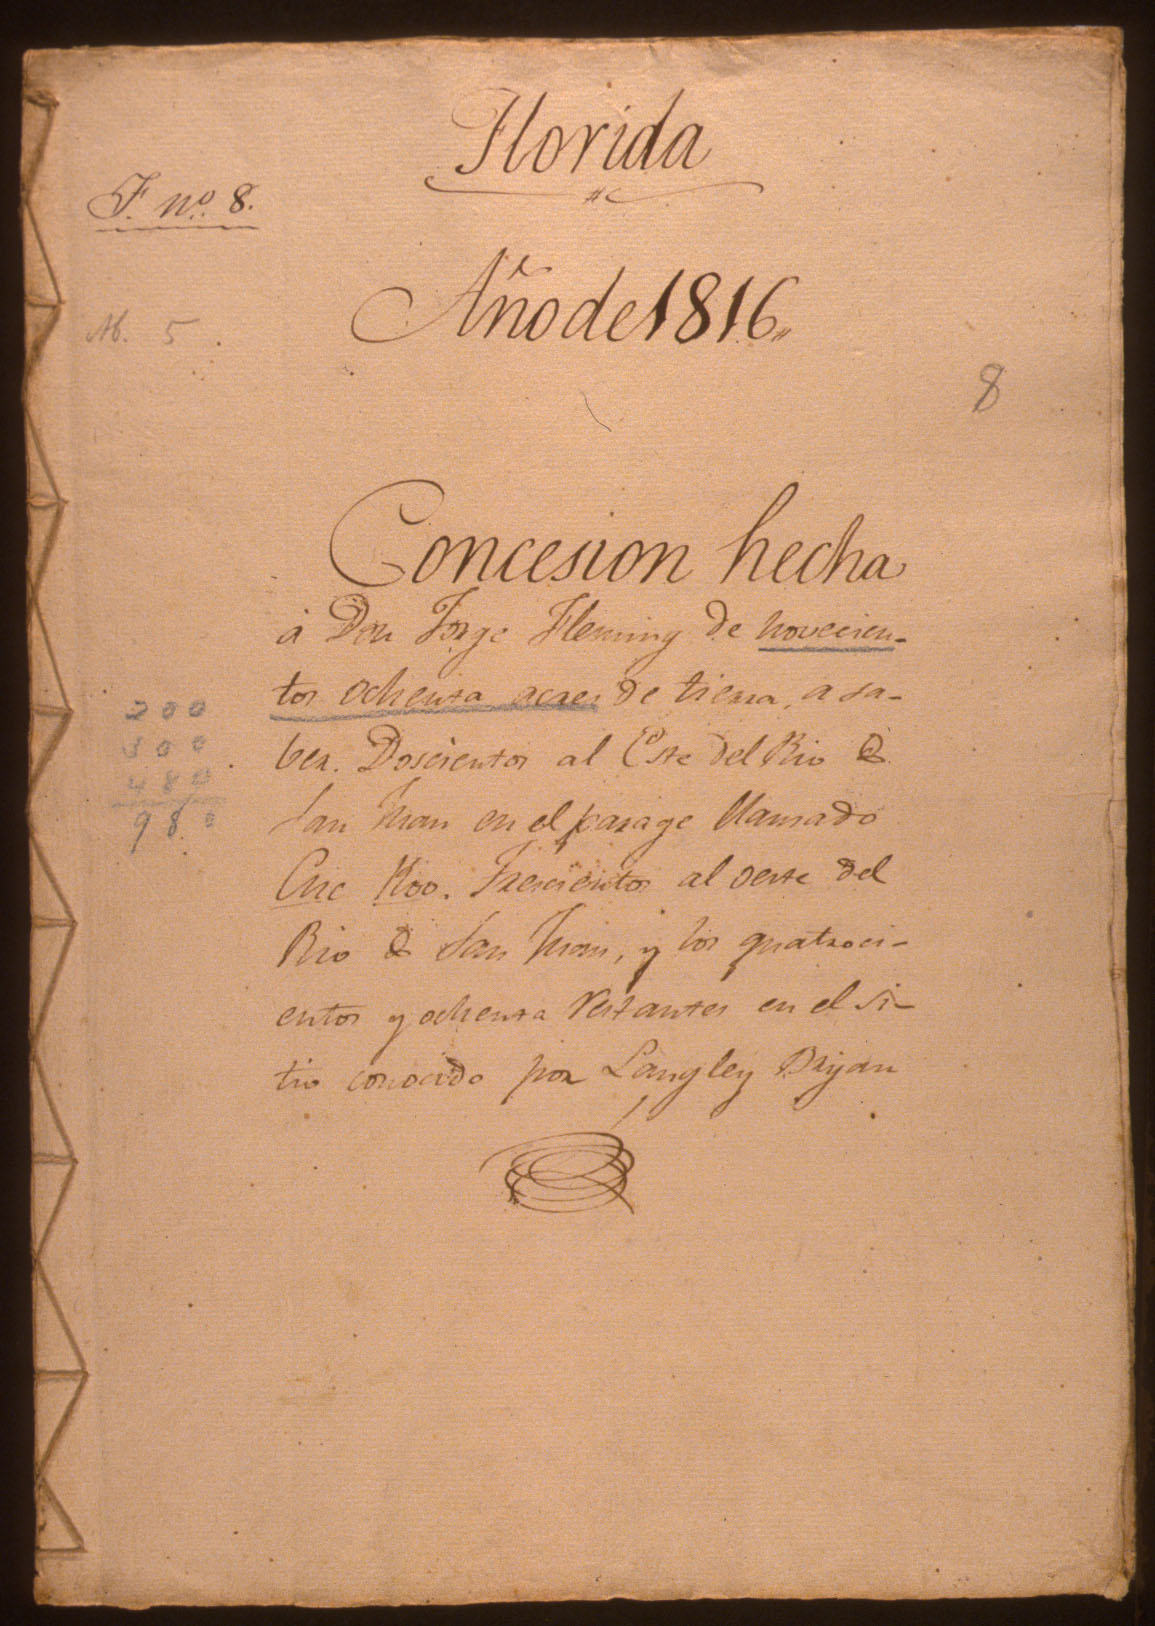 Florida
F. no. 8.
Año de 1816,,
Ab. 5.
8
Concesion hecha
á Don Jorge Fleming de novecien-
tos ochenta acres de tierra, a sa-
ber. Doscientos al Este del Rio de
San Juan en el parage llamado
Cric Roo. Trescientos al oeste del
Rio de San Juan, y los quatroci-
entos y ochenta restantes en el si-
tio conocido por Langley Bryan
200
300
480
980